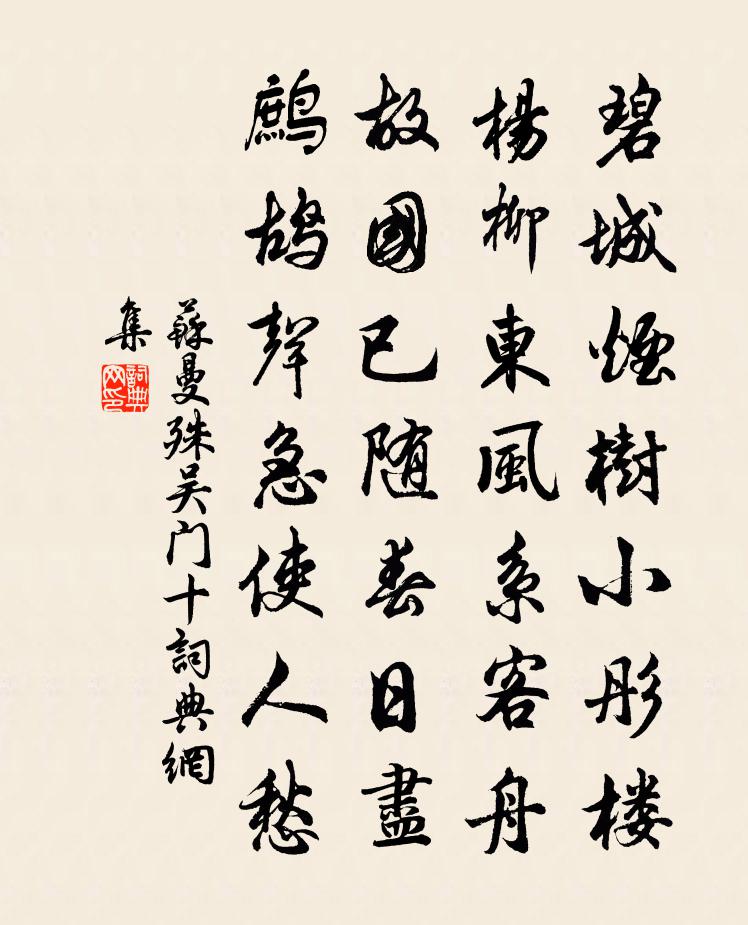 碧城煙樹小彤楼
楊柳東風系客舟
故國已随春日盡
鷓鴣聲急使人愁
蘇曼殊吴门十詞典網
集
詞典
网印